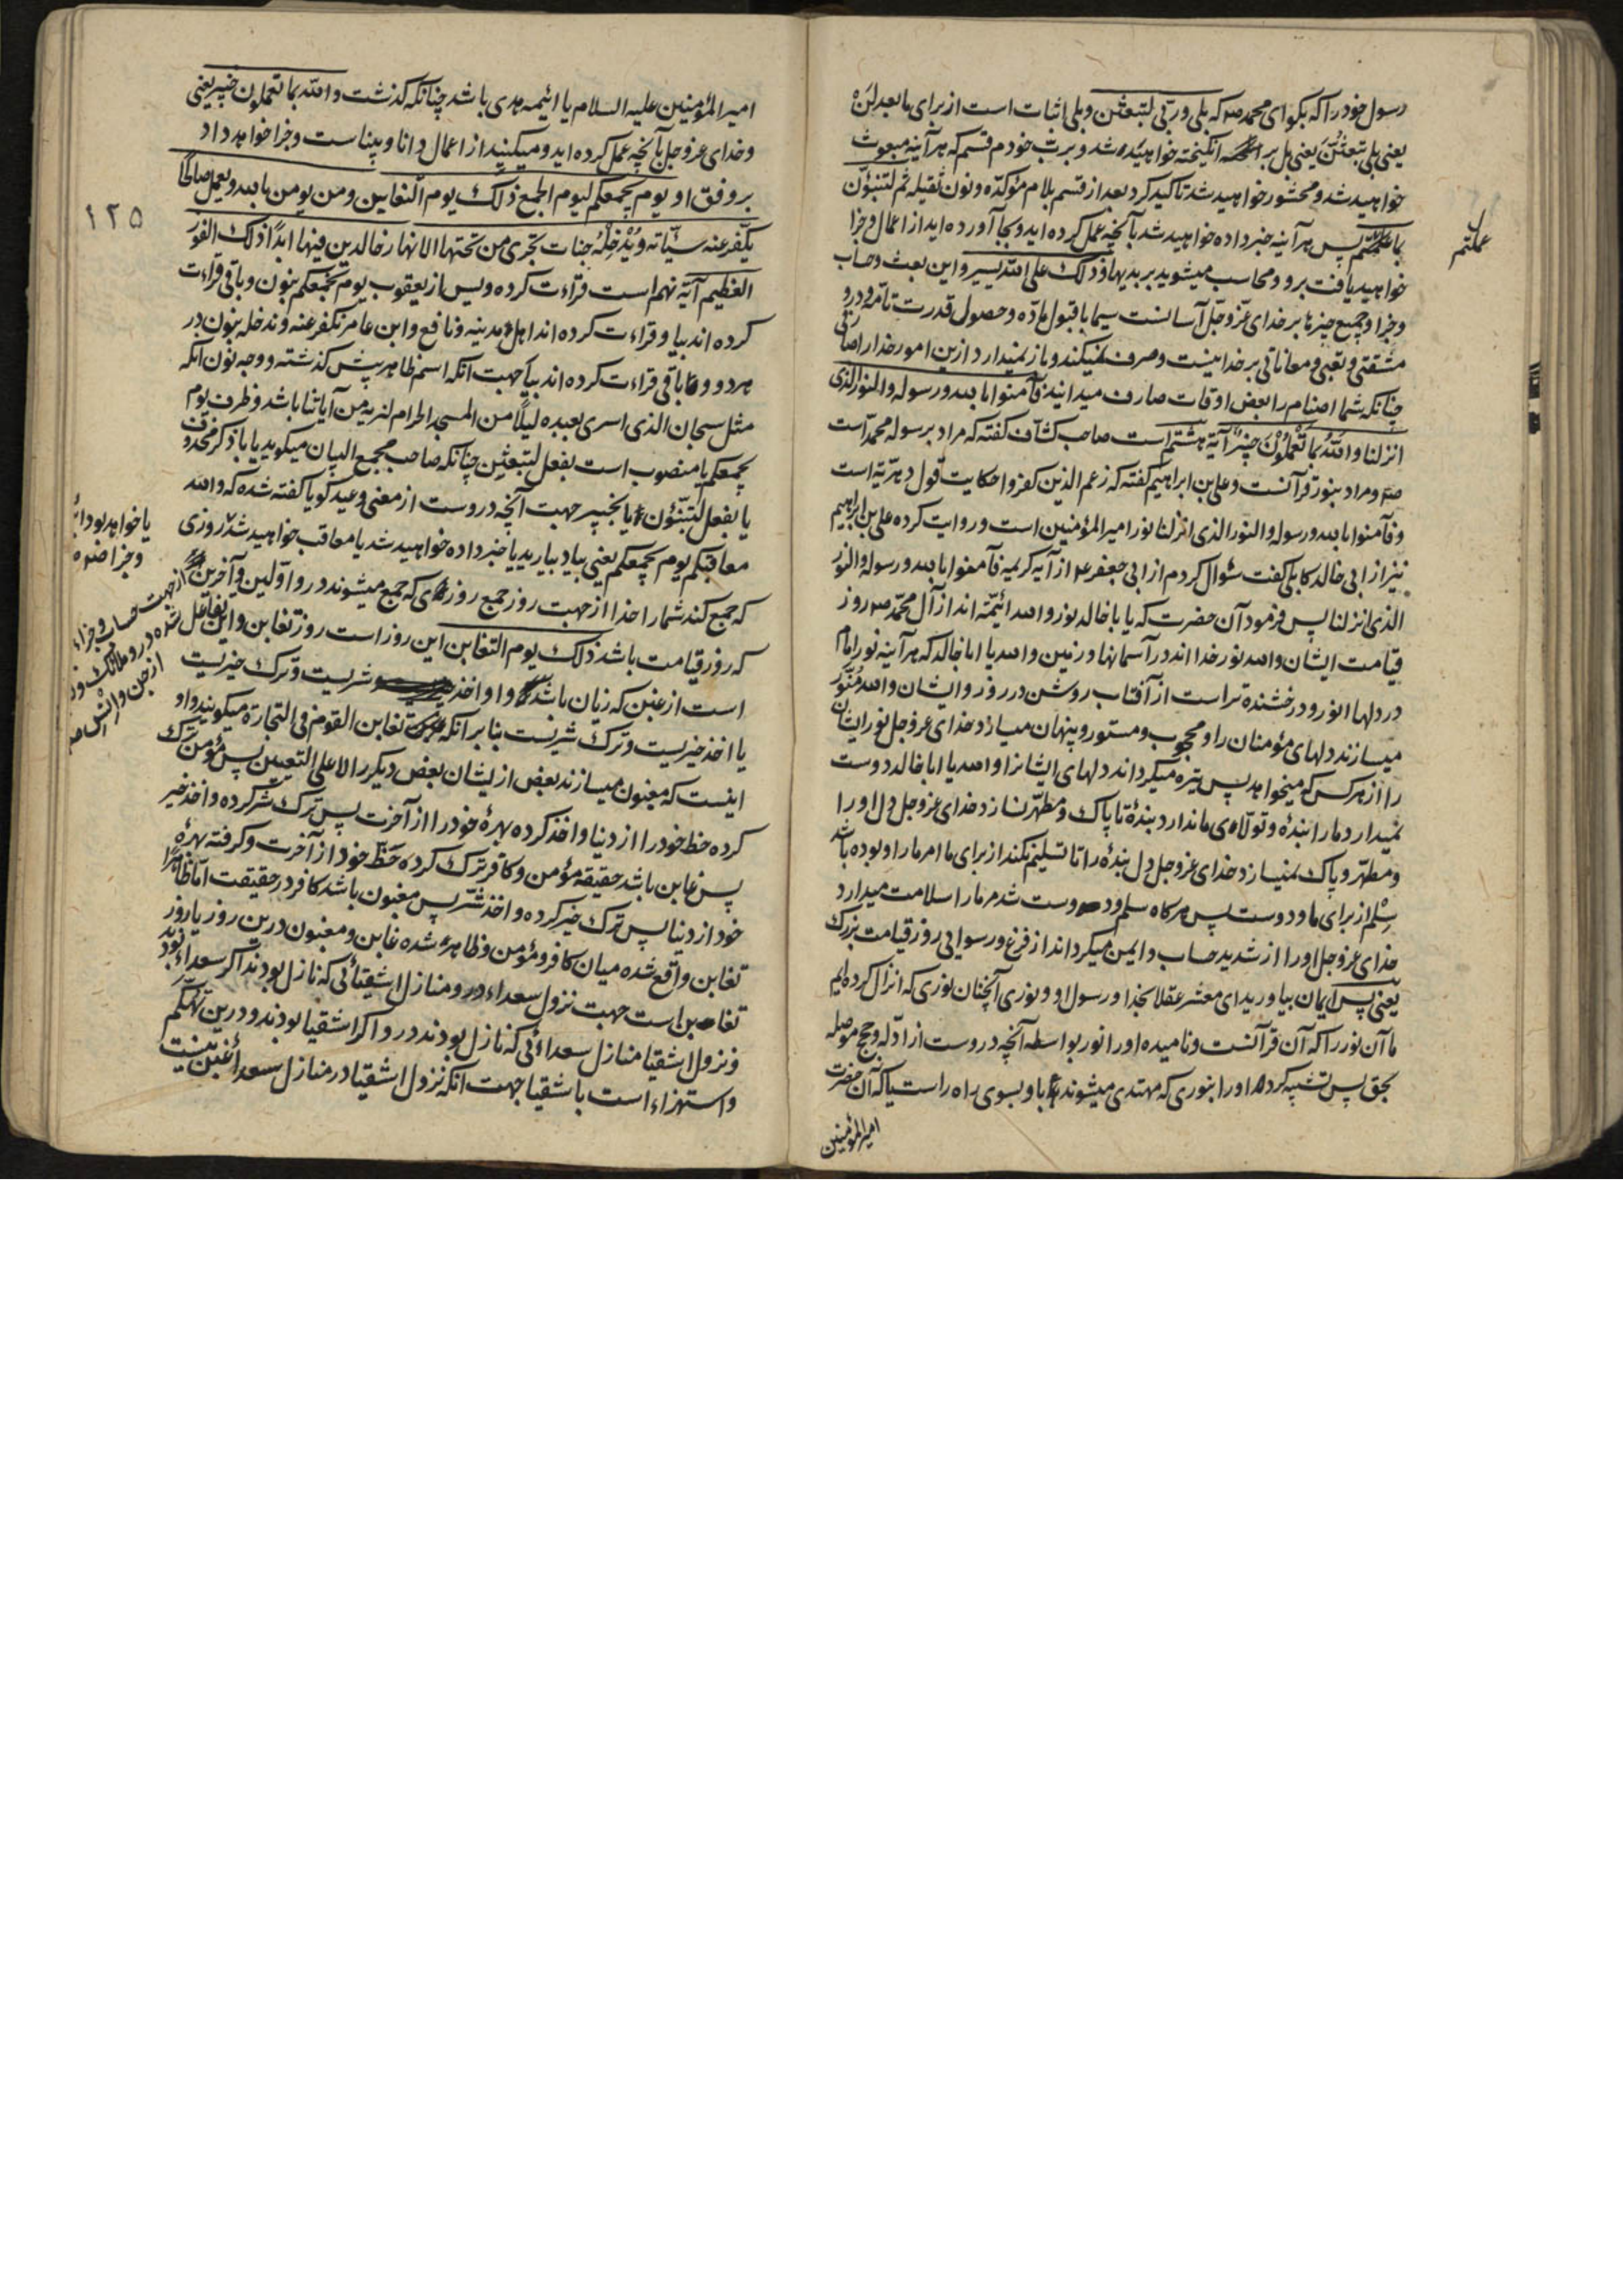 رسول خود را که بکو ای محمد ص که بلی و ربّی لتبعثن و بلی اثبات است از برای ما بعد لن
یعنی بلی تبعثُنّ یعنی بل بر انکیخته خواهید شد و بربّ خودم قسم که هر آینه مبعوث
خواهید شد و محشور خواهید شد تاکید کرد بعد از قسم بلام مؤکدّه و نون ثقیله ثم لتنبؤن
بما عملتم پس هر آینه خبر داده خواهید شد بآنچه عمل کرده اید و بجا آورده اید از اعمال و جزا
عملتم
خواهید یافت برو و محاسب میشوید بر بدیها و ذلک علی الله یسیر و این بعث و حساب
و جزا و جمیع چیزها بر خدای عزّ و جلّ آسانست سیما با قبول مادّه و حصول قدرت تامّه و درو
مشقتی و تعبی و معاناتی بر خدا نیست و صرف نمیکند و باز نمیدارد ازین امور خدا را صارفی
چنانکه شما اصنام را بعض اوقات صارف میدانید فآمنوا بالله و رسوله و النور الذی
انزلنا و اللّهُ بما تَعْمَلوُنَ خَبیرٌ آیهٔ هشتم است صاحب کشّاف کفته که مراد برسوله محمد است
ص و مراد بنور قرآنست و علی بن ابراهیم کفته که زعم الذین کفروا حکایت قول دهریّه است
و فآمنوا بالله و رسوله و النور الذی انزلنا نور امیر المؤمنین است و روایت کرده علی بن ابراهیم
نیز از ابی خالد کابلی کفت سئوال کردم از ابی جعفر ع از آیه کریمه فآمنوا بالله و رسوله و النور
الذی انزلنا پس فرمود آن حضرت که یا با خالد نور و الله ائیمّه اند از آل محمّد ص روز
قیامت ایشان و الله نور خدا اند در آسمانها و زمین و الله یا ابا خالد که هر آینه نور امام
در دلها انور و درخشنده تر است از آفتاب روشن در روز و ایشان و الله مُنَوّر
میسازند دلهای مؤمنان را و محجوب و مستور و پنهان میسازد خدای عزوجل نور ایشان
را از هر کس که میخواهد پس تیره میکرداند دلهای ایشانرا و الله یا ابا خالد دوست
نمیدارد ما را بندهٔ و تولّای ما ندارد بندهٔ تا پاک و مطهّر نسازد خدای عزوجل دل او را
و مطهّر و پاک نمیسازد خدای عزوجل دل بندهٔ را تا تسلیم نکند از برای ما امر ما را و بوده باشد
سِلْم از برای ما و دوست پس هرکاه سلم و دوست شد مر ما را سلامت میدارد
خدای عزوجل او را از شدید حساب و ایمن میکرداند از فزع و رسوایی روز قیامت بزرک
یعنی پس ایمان بیاورید ای معشر عقلا بخدا و رسول او و نوری آنچنان نوری که انزال کرده ایم
ما آن نور را که آن قرآنست و نامیده او را نور بواسطه آنچه دروست از ادّله و حجج موصله
بحق پس تشبیه کرده او را بنوری که مهتدی میشوند باو بسوی راه راست یا که آن حضرت
امیر المؤمنین
امیر المؤمنین علیه السلام یا ائیمه هدی باشد چنانکه کذشت و الله بما تعملون خبیر یعنی
و خدای عزوجل بآنچه عمل کرده اید و میکنید از اعمال دانا و بیناست و جزا خواهد داد
بر وفق او یوم یجمعکم لیوم الجمع ذلک یوم التغابن و من یومن بالله و یعمل صالحًا
۱۲۵
یکّفر عنه سیّاته و یُدْخِلْهُ جنات تجری من تحتها الانهار خالدین فیها ابدًا ذلک الفوز
العظیم آیهٔ نهم است قراءت کرده ویس از یعقوب یوم نجمعکم بنون و باقی قراءت
کرده اند بیا و قراءت کرده اند اهل مدینه و نافع و ابن عامر نکفر عنه و ندخله بنون در
هر دو و باقی قراءت کرده اند بیا جهت آنکه اسم ظاهر پیش کذشته و وجه نون آنکه
مثل سبحان الذی اسری بعبده لیلًا من المسجد الحرام لنریه من آیاتنا باشد و ظرف یوم
یجمعکم یا منصوب است بفعل لتبعثن چنانکه صاحب مجمع البیان میکوید یا باذکر محذوف
یا بفعل لتنبّؤن یا بخبیر جهت آنچه دروست از معنی وعید کویا کفته شده که و الله
معاقبکم یوم یجمعکم یعنی بیاد بیارید یا خبر داده خواهید شد یا معاقب خواهید شد روزی
یا خواهد بود
و جزا
که جمع کند شما را خدا از جهت روز جمع روزی که جمع میشوند درو اوّلین و آخرین از جهت حساب و جزاء
که روز قیامت باشد ذلک یوم التغابن این روز است روز تغابن و این تفاعل
است از غبن که زیان باشد و او اخذ شریست و ترک خیریست
از جن و انس
یا اخذ خیریست و ترک شریست بنا بر آنکه تغابن القوم فی التجارة میکویند و او
اینست که مغبون میسازند بعض از یشان بعض دیکر را لا علی التعیین پس مؤمن ترک
کرده حظ خود را از دنیا و اخذ کرده بهرهٔ خود را از آخرت پس ترک شر کرده و اخذ خیر
پس غابن باشد حقیقه مؤمن و کافر ترک کرده حَظّ خود از آخرت و کرفته بهرهٔ
خود از دنیا پس ترک خیر کرده و اخذ شّر پس مغبون باشد کافر در حقیقت اما ظاهرًا
تغابن واقع شده میان کافر و مؤمن و ظاهر شده غابن و مغبون درین روز یا روز
تغابن است جهت نزول سعداء درو منازل اشقیائی که نازل بودند اکر سعداء بودند
و نزول اشقیا منازل سعداءئی که نازل بودند درو اکر اشقیا بودند و درین تهکّم
و استهزاء است باشقیا جهت آنکه نزول اشقیا در منازل سعداء غبن نیست